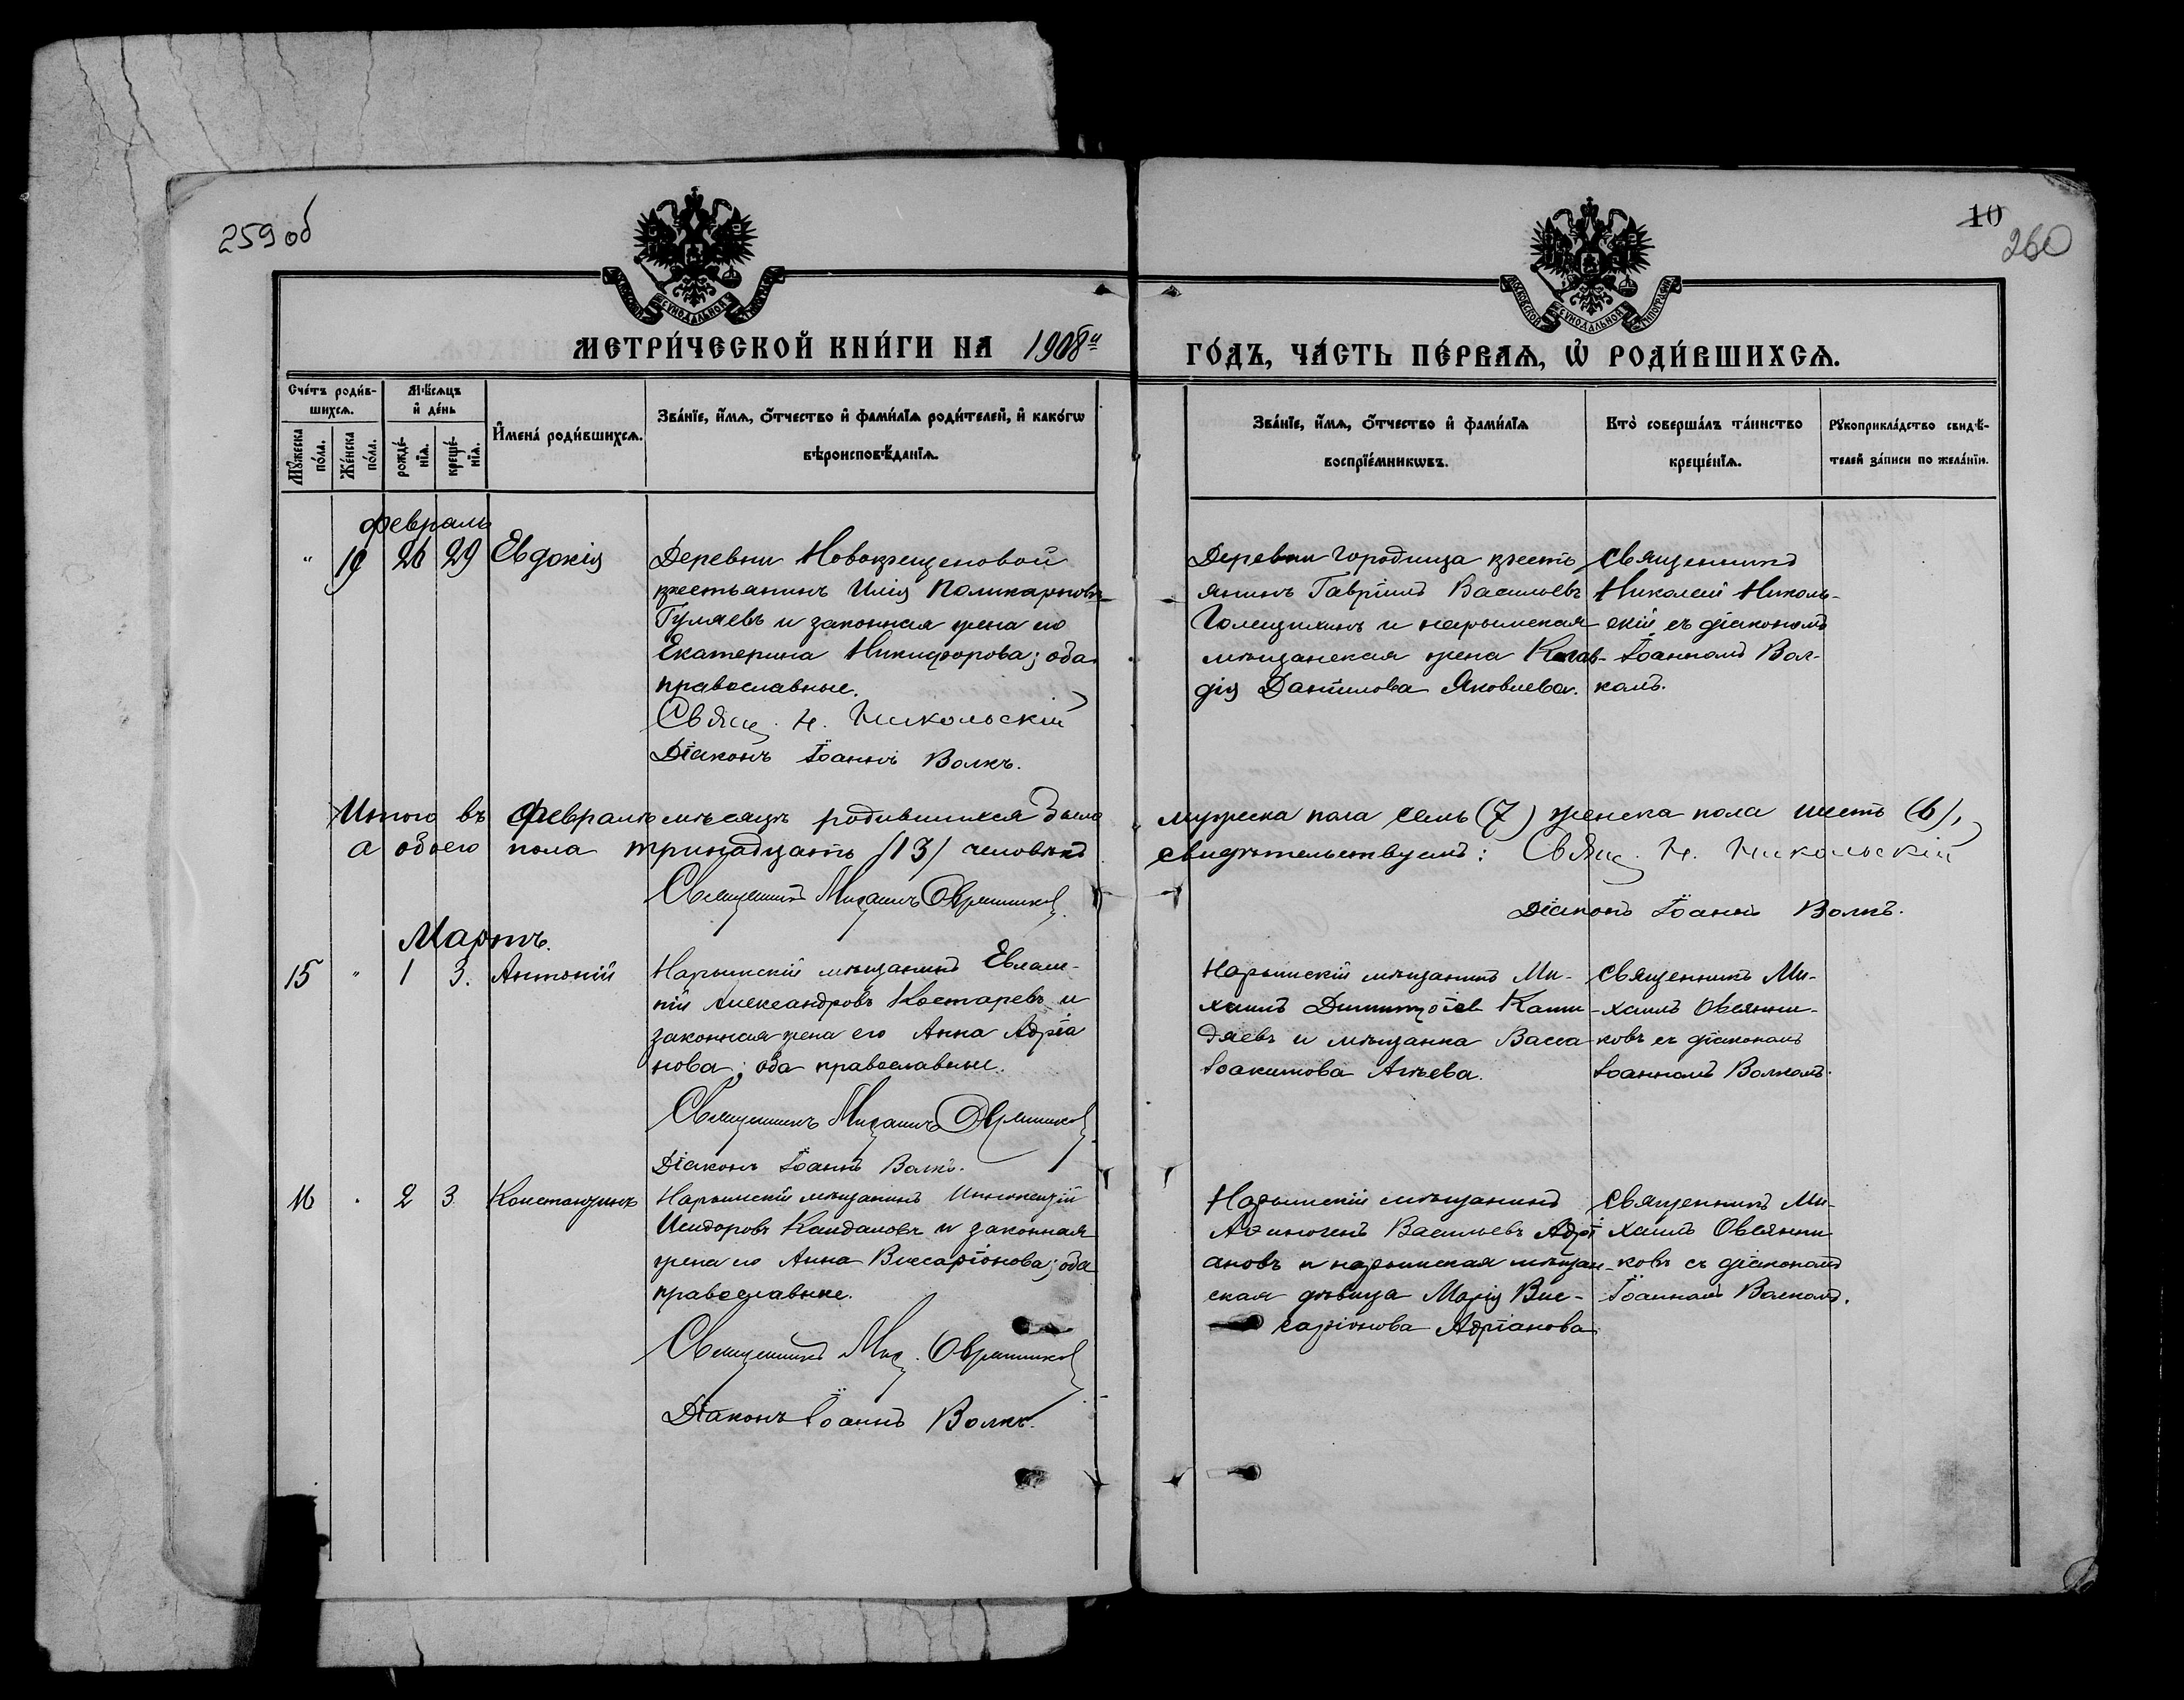 259 об
10
260
МЕТРИ́ЧЕСКОЙ КНИ́ГИ НА 1908й
ГО́ДЪ, ЧА́СТЬ ПЕ́РВАѦ, Ѿ РОДИ́ВШИХСѦ.
МОСКОВСКОЙ СѴНОДАЛЬНОЙ ТИПОГРАФІИ
Сче́тъ роди́в-
шихсѧ.
Мѣ́сѧцъ
и҆ де́нь
Му́жеска
по́ла.
Же́нска
по́ла.
рожде́-
нїѧ.
креще́-
нїѧ.
И҆мена́ роди́вшихсѧ.
Зва́нїе, и҆́мѧ, ѻ҆́тчество и҆ фами́лїѧ роди́телей, и҆ како́гѡ
вѣроисповѣ́данїѧ.
Зва́нїе, и҆́мѧ, ѻ҆́тчество и҆ фами́лїѧ
воспрїе́мникѡвъ.
Кто̀ соверша́лъ та́инство
креще́нїѧ.
Рꙋкоприкла́дство свидѣ́-
телей за́писи по жела́нїю.
Февраль
" 19 26 29 Евдокія
Деревни Новокрещеновой
крестьянинъ Илія Поликарповъ
Гуляевъ и законная жена его
Екатерина Никифорова; оба
православные.
Свящ. Н. Никольскій
Діаконъ Іоаннъ Волкъ.
Деревни Городища кресть
янинъ Гавріилъ Васильевъ
Голещихинъ и нарымская
мѣщанская жена Клав-
дія Данилова Яковлева.
Священникъ
Николай Николь-
скій съ діакономъ
Іоанномъ Вол-
комъ.
Итого въ Февралѣ мѣсяцѣ родившихся было мужеска пола семь (7) женска пола шесть (6),
а обоего пола тринадцать (13) человѣкъ свидѣтельствуемъ: Свящ. Н. Никольскій
Священникъ Михаилъ Овсянниковъ
Діаконъ Іоаннъ Волкъ.
Мартъ.
15 " 1 3. Антоній
Нарымскій мѣщанинъ Евлам-
пій Александровъ Костаревъ и
законная жена его Анна Адріа
нова; оба православные.
Священникъ Михаилъ Овсянниковъ
Діаконъ Іоаннъ Волкъ.
Нарымскій мѣщанинъ Ми-
хаилъ Димитріев
и мѣщанка Васса
Іоакимова
Священникъ Ми-
хаилъ Овсянни-
ковъ съ діакономъ
Іоанномъ Волкомъ.
16 " 2 3 Константинъ
Нарымскій мѣщанинъ Иннокентій
Исидоровъ Кайдаловъ и законная
жена его Анна Виссаріонова; оба
православные.
Священникъ Мих. Овсянниковъ
Діаконъ Іоаннъ Волкъ.
Нарымскій мѣщанинъ
Аѳиногенъ Васильевъ Адрі
ановъ и нарымская мѣщан-
ская дѣвица Марія Вис-
саріонова Адріанова
Священникъ Ми-
хаилъ Овсянни
ковъ съ діакономъ
Іоанномъ Волкомъ.